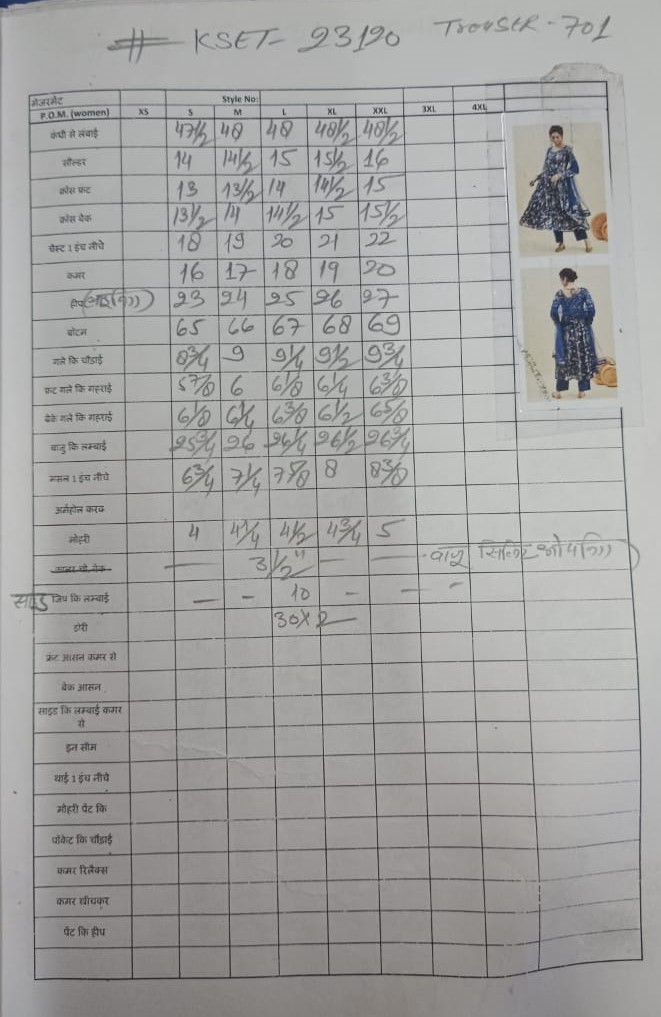 # KSET- 23190 TROUSER - 701
मेजरमेंट Style No:
P.O.M. (women) XS S M L XL XXL 3XL 4XL
कंधी से लंबाई 47 1/2 48 48 48 1/2 48 1/2
सोल्डर 14 14 1/2 15 15 1/2 16
क्रोस फ्रंट 13 13 1/2 14 14 1/2 15
क्रोस बेक 13 1/2 14 14 1/2 15 15 1/2
चेस्ट 1 इंच नीचे 18 19 20 21 22
कमर 16 17 18 19 20
हीप 23 24 25 26 27
बोटम 65 66 67 68 69
गले कि चौड़ाई 8 3/4 9 9 1/4 9 1/2 9 3/4
फ्रंट गले कि गहराई 5 7/8 6 6 1/8 6 1/4 6 3/8
बेक गले कि गहराई 6 1/8 6 1/4 6 3/8 6 1/2 6 5/8
बाजु कि लम्बाई 25 3/4 26 26 1/4 26 1/2 26 3/4
मसल 1 इंच नीचे 6 3/4 7 1/4 7 5/8 8 8 3/8
अर्महोल करव
मोहरी 4 4 1/4 4 1/2 4 3/4 5
— 3 1/2" — — बाजू
साइड जिप कि लम्बाई — - 10 - — -
डोरी 30 x 2
फ्रंट आसन कमर से
बेक आसन
साइड कि लम्बाई कमर से
इन सीम
थाई 1 इंच नीचे
मोहरी पेंट कि
पॉकेट कि चौड़ाई
कमर रिलैक्स
कमर खीचकर
पेंट कि हीप